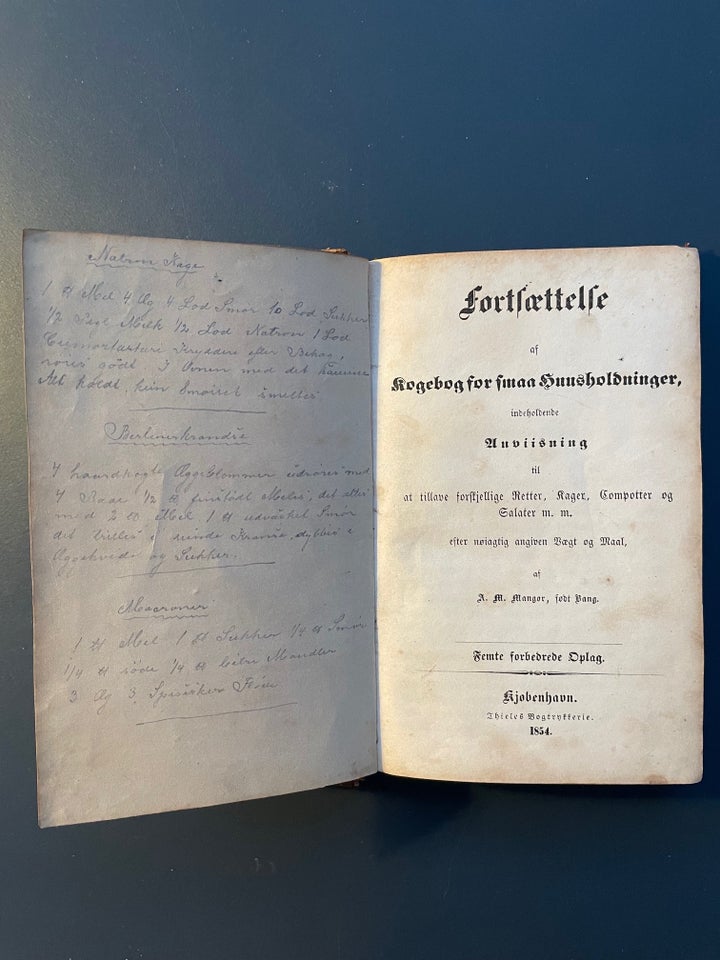 Natron Kage
1 ℔ Mel 4 Æg 4 Lod Smør 10 Lod Sukker
1/2 Melk 1/2 Lod Natron 1 Lod
Krydderi efter Behag,
røres godt I Ovnen med det
Alt koldt, kun Smøret smeltes
Berlinerkrandse
7 haardkogte Æggeblommer udrøres med
7 Raae 1/2 ℔ finstødt Melis, det æltes
med 2 ℔ Mel, 1 ℔ udvasket Smør
det trilles i runde Kranse, dyppes i
Æggehvide og Sukker.
Macroner
1 ℔ Mel 1 ℔ Sukker 1/4 ℔ Smør
1/4 ℔ søde 1/4 ℔ bitre Mandler
3 Æg 3 Fløde
Fortsættelse
af
Kogebog for smaa Huusholdninger,
indeholdende
Anviisning
til
at tillave forskjellige Retter, Kager, Compotter og
Salater m. m.
efter nøiagtig angiven Vægt og Maal,
af
A. M. Mangor, født Bang.
Femte forbedrede Oplag.
Kjøbenhavn.
Thieles Bogtrykkerie.
1854.